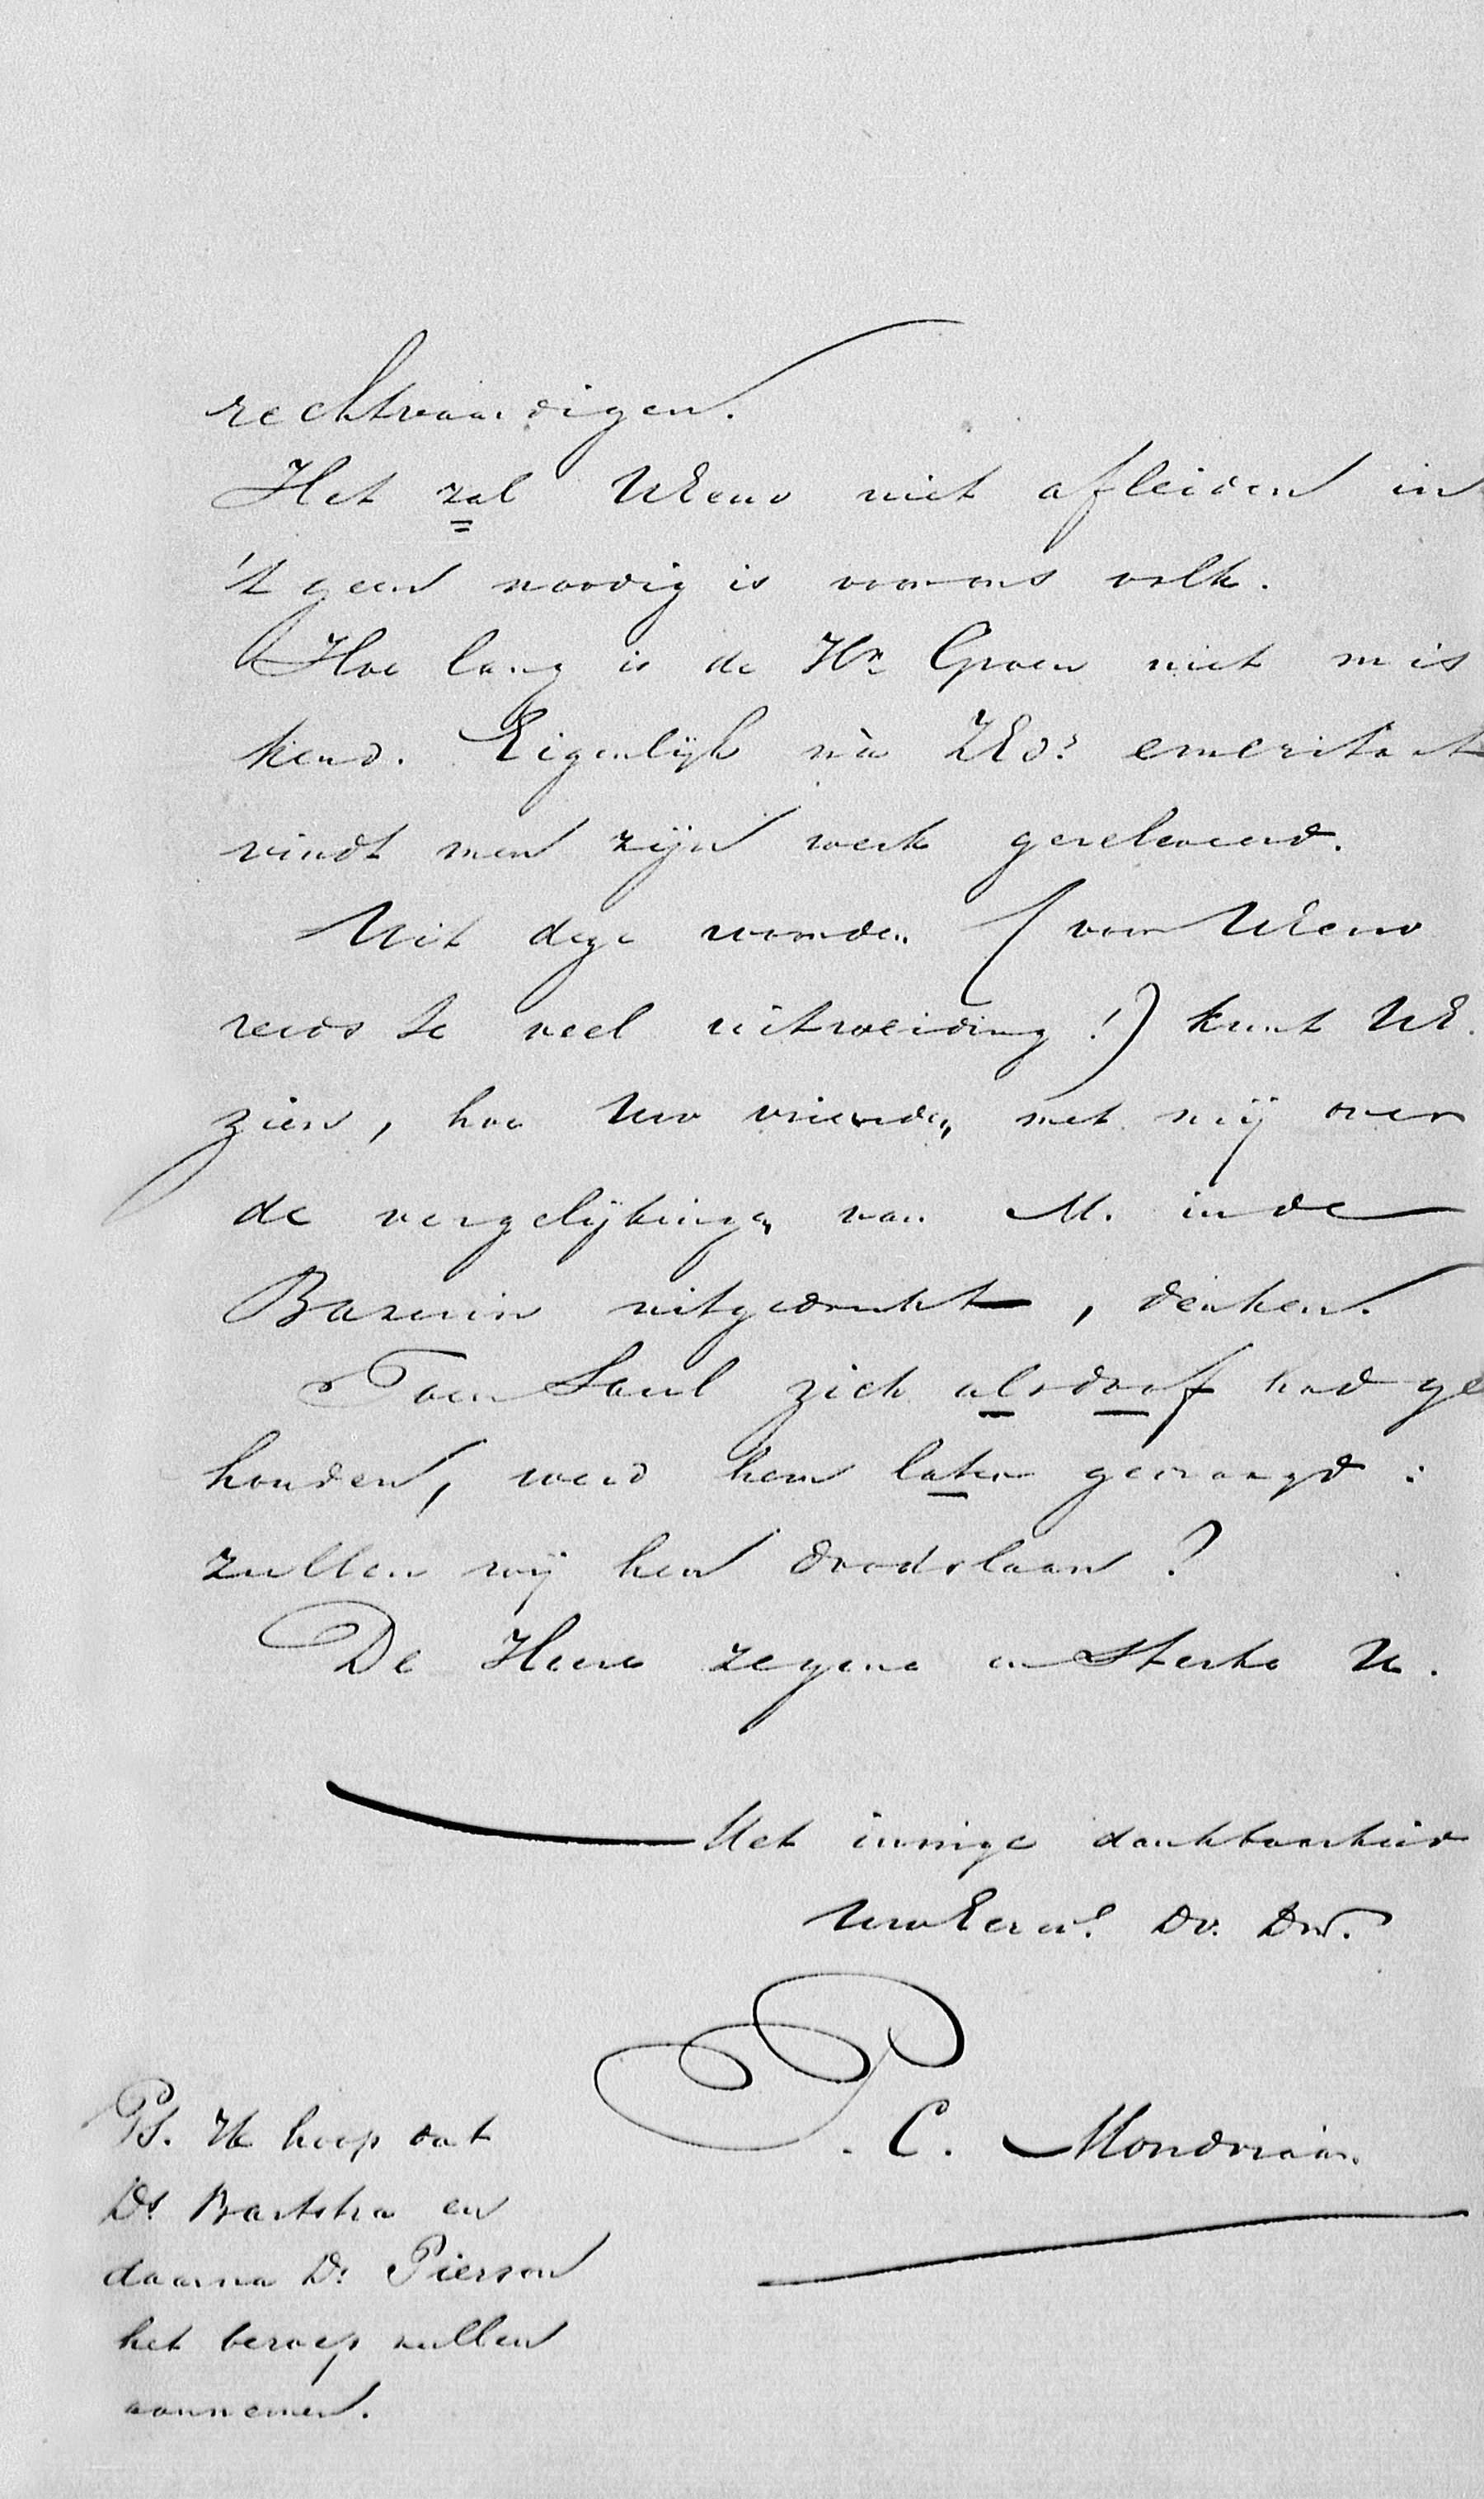 rechtvaardigen.
Het zal UEerw niet afleiden in
't geen noodig is voor ons volk.
Hoe lang is de Hr Groen niet mis
kend. Eigenlijk nà ZEds emeritaat
vindt men zijn werk gereleveerd.
Uit deze woorden (voor UEerw
reeds te veel uitweiding!) kunt UE.
zien, hoe Uw vrienden met mij over
de vergelijkingen van M. in de
Bazuin uitgedrukt, denken.
Toen Saul zich als doof had ge
houden, werd hem later gevraagd:
zullen wij hen doodslaan?
De Heere zegene en sterke U.
Met innige dankbaarheid
UwEerw. Dv. Dr.
P. C. Mondriaan
PS. Ik hoop dat
Ds Bartstra en
daarna Ds Pierson
het beroep zullen
aannemen.